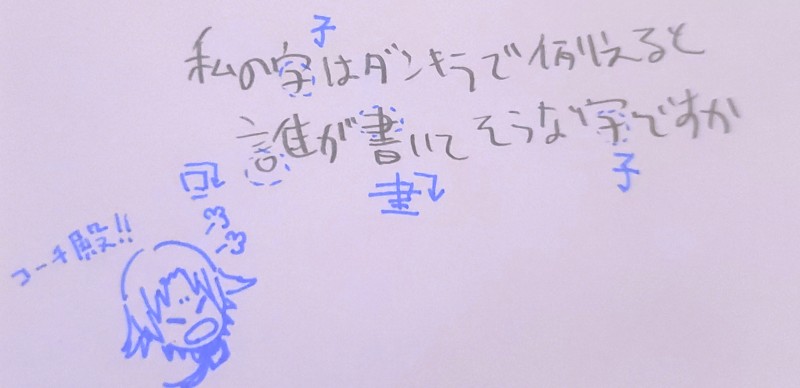 子
私の字はダンキラで例えると
誰が書いてそうな字ですか
書
子
コーチ殿!!